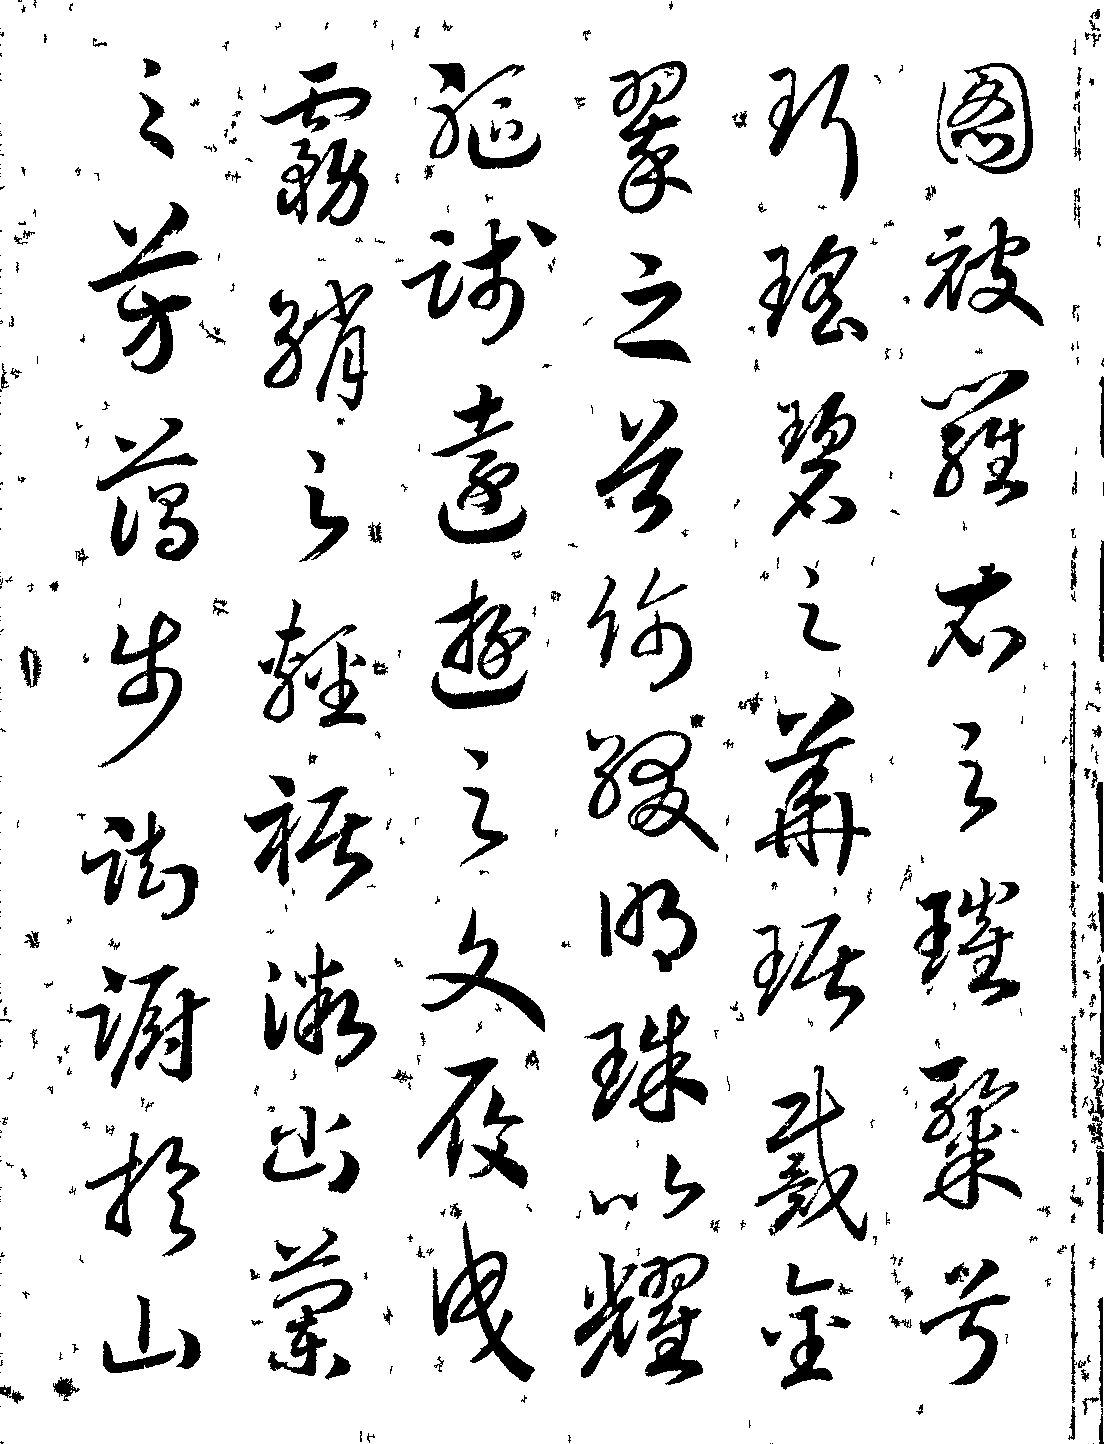 圖披羅衣之璀粲兮
珥瑤碧之華琚戴金
翠之首飾綴明珠以耀
軀踐遠遊之文履曳
霧綃之輕裾微幽蘭
之芳藹步踟躕於山